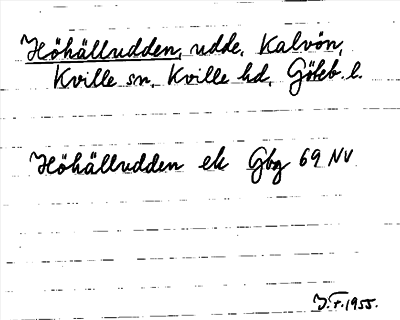 Höhälludden, udde, Kalvön,
Kville sn, Kville hd, Göteb. l.
Höhälludden ek Gbg 69 NV
J.F. 1955.